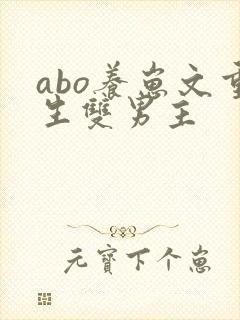 abo養崽文重
生雙男主
元寶下个崽